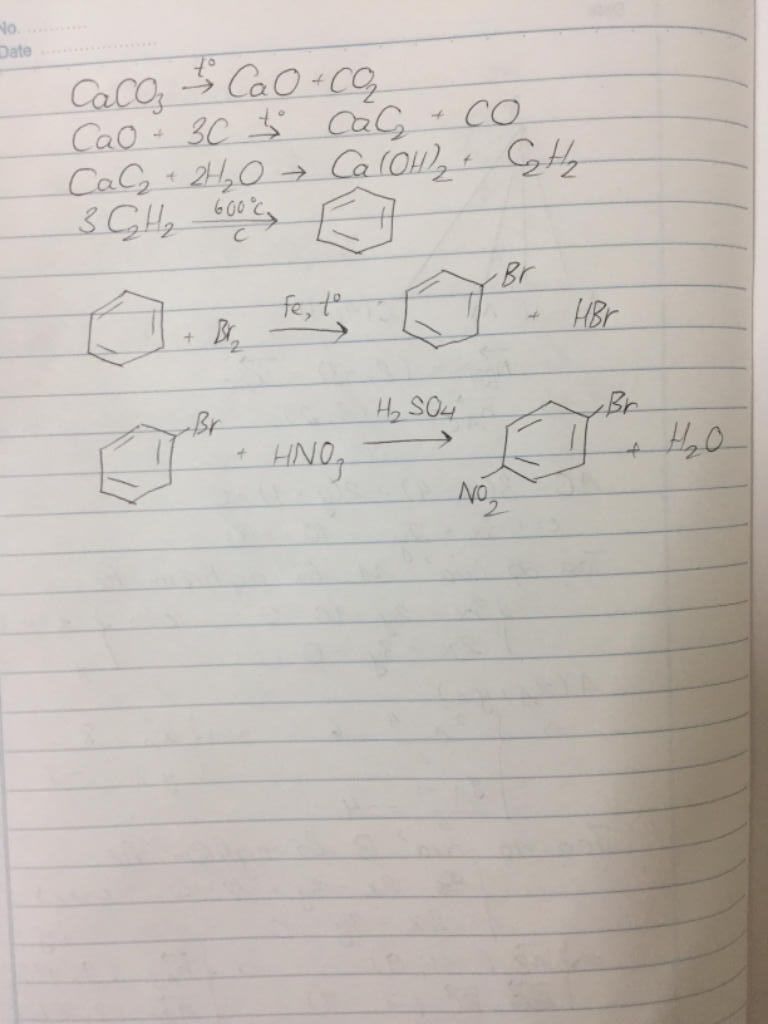 No. ............
Date ......................
CaCO₃ →t° CaO + CO₂
CaO + 3C →t° CaC₂ + CO
CaC₂ + 2H₂O → Ca(OH)₂ + C₂H₂
3C₂H₂ →600°C, C
+ Br₂ →Fe, t° Br + HBr
Br + HNO₃ →H₂SO₄ Br NO₂ + H₂O